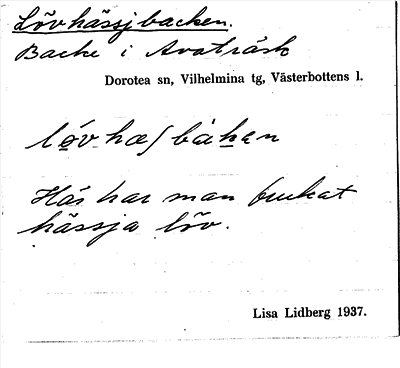 Lövhässjbacken.
Backe i Avaträsk
Dorotea sn, Vilhelmina tg, Västerbottens l.
Här har man brukat
hässja löv.
Lisa Lidberg 1937.